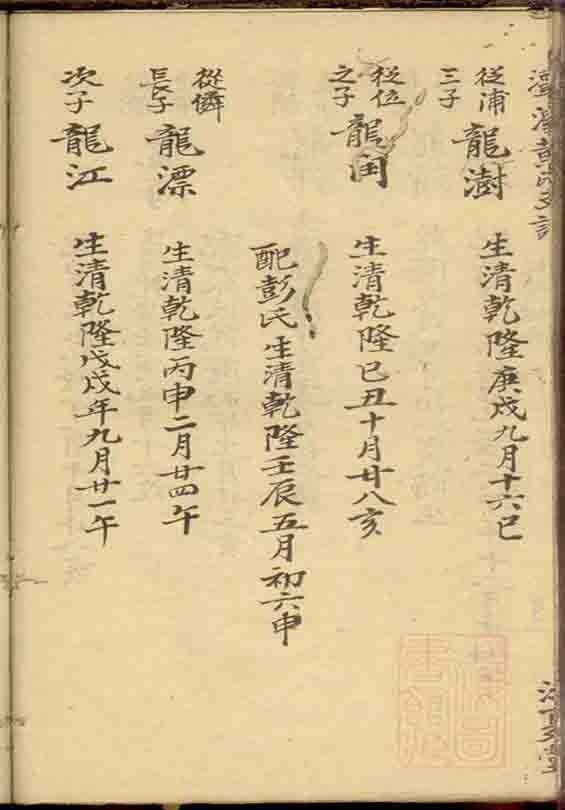 從浦三子 龍澍 生清乾隆庚戌九月十六巳
從位之子 龍閏 生清乾隆己丑十月廿八亥
配彭氏生清乾隆壬辰五月初六申
從僯長子 龍漂 生清乾隆丙申二月廿四午
次子 龍江 生清乾隆戊戌年九月廿一午